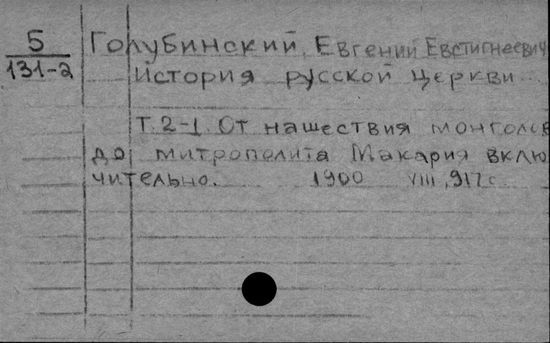 5
131-2
Голубинский, Евгений Евстигнеевич
История русской церкви
Т.2-1. От нашествия монголов
до митрополита Макария вклю
чительно. 1900 VIII, 917 с.